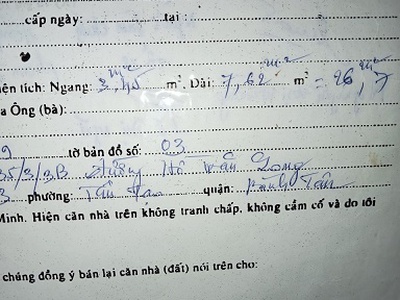 cấp ngày: tại :
iện tích: Ngang: 3,45 m² m². Dài: 7,62 m² m² = 26,7 m²
a Ông (bà):
9 tờ bản đồ số: 03
35/3/3B đường Hồ Văn Long
3 phường: Tân Tạo quận: Bình Tân
Minh. Hiện căn nhà trên không tranh chấp, không cầm cố và do tôi
chúng đồng ý bán lại căn nhà (đất) nói trên cho: